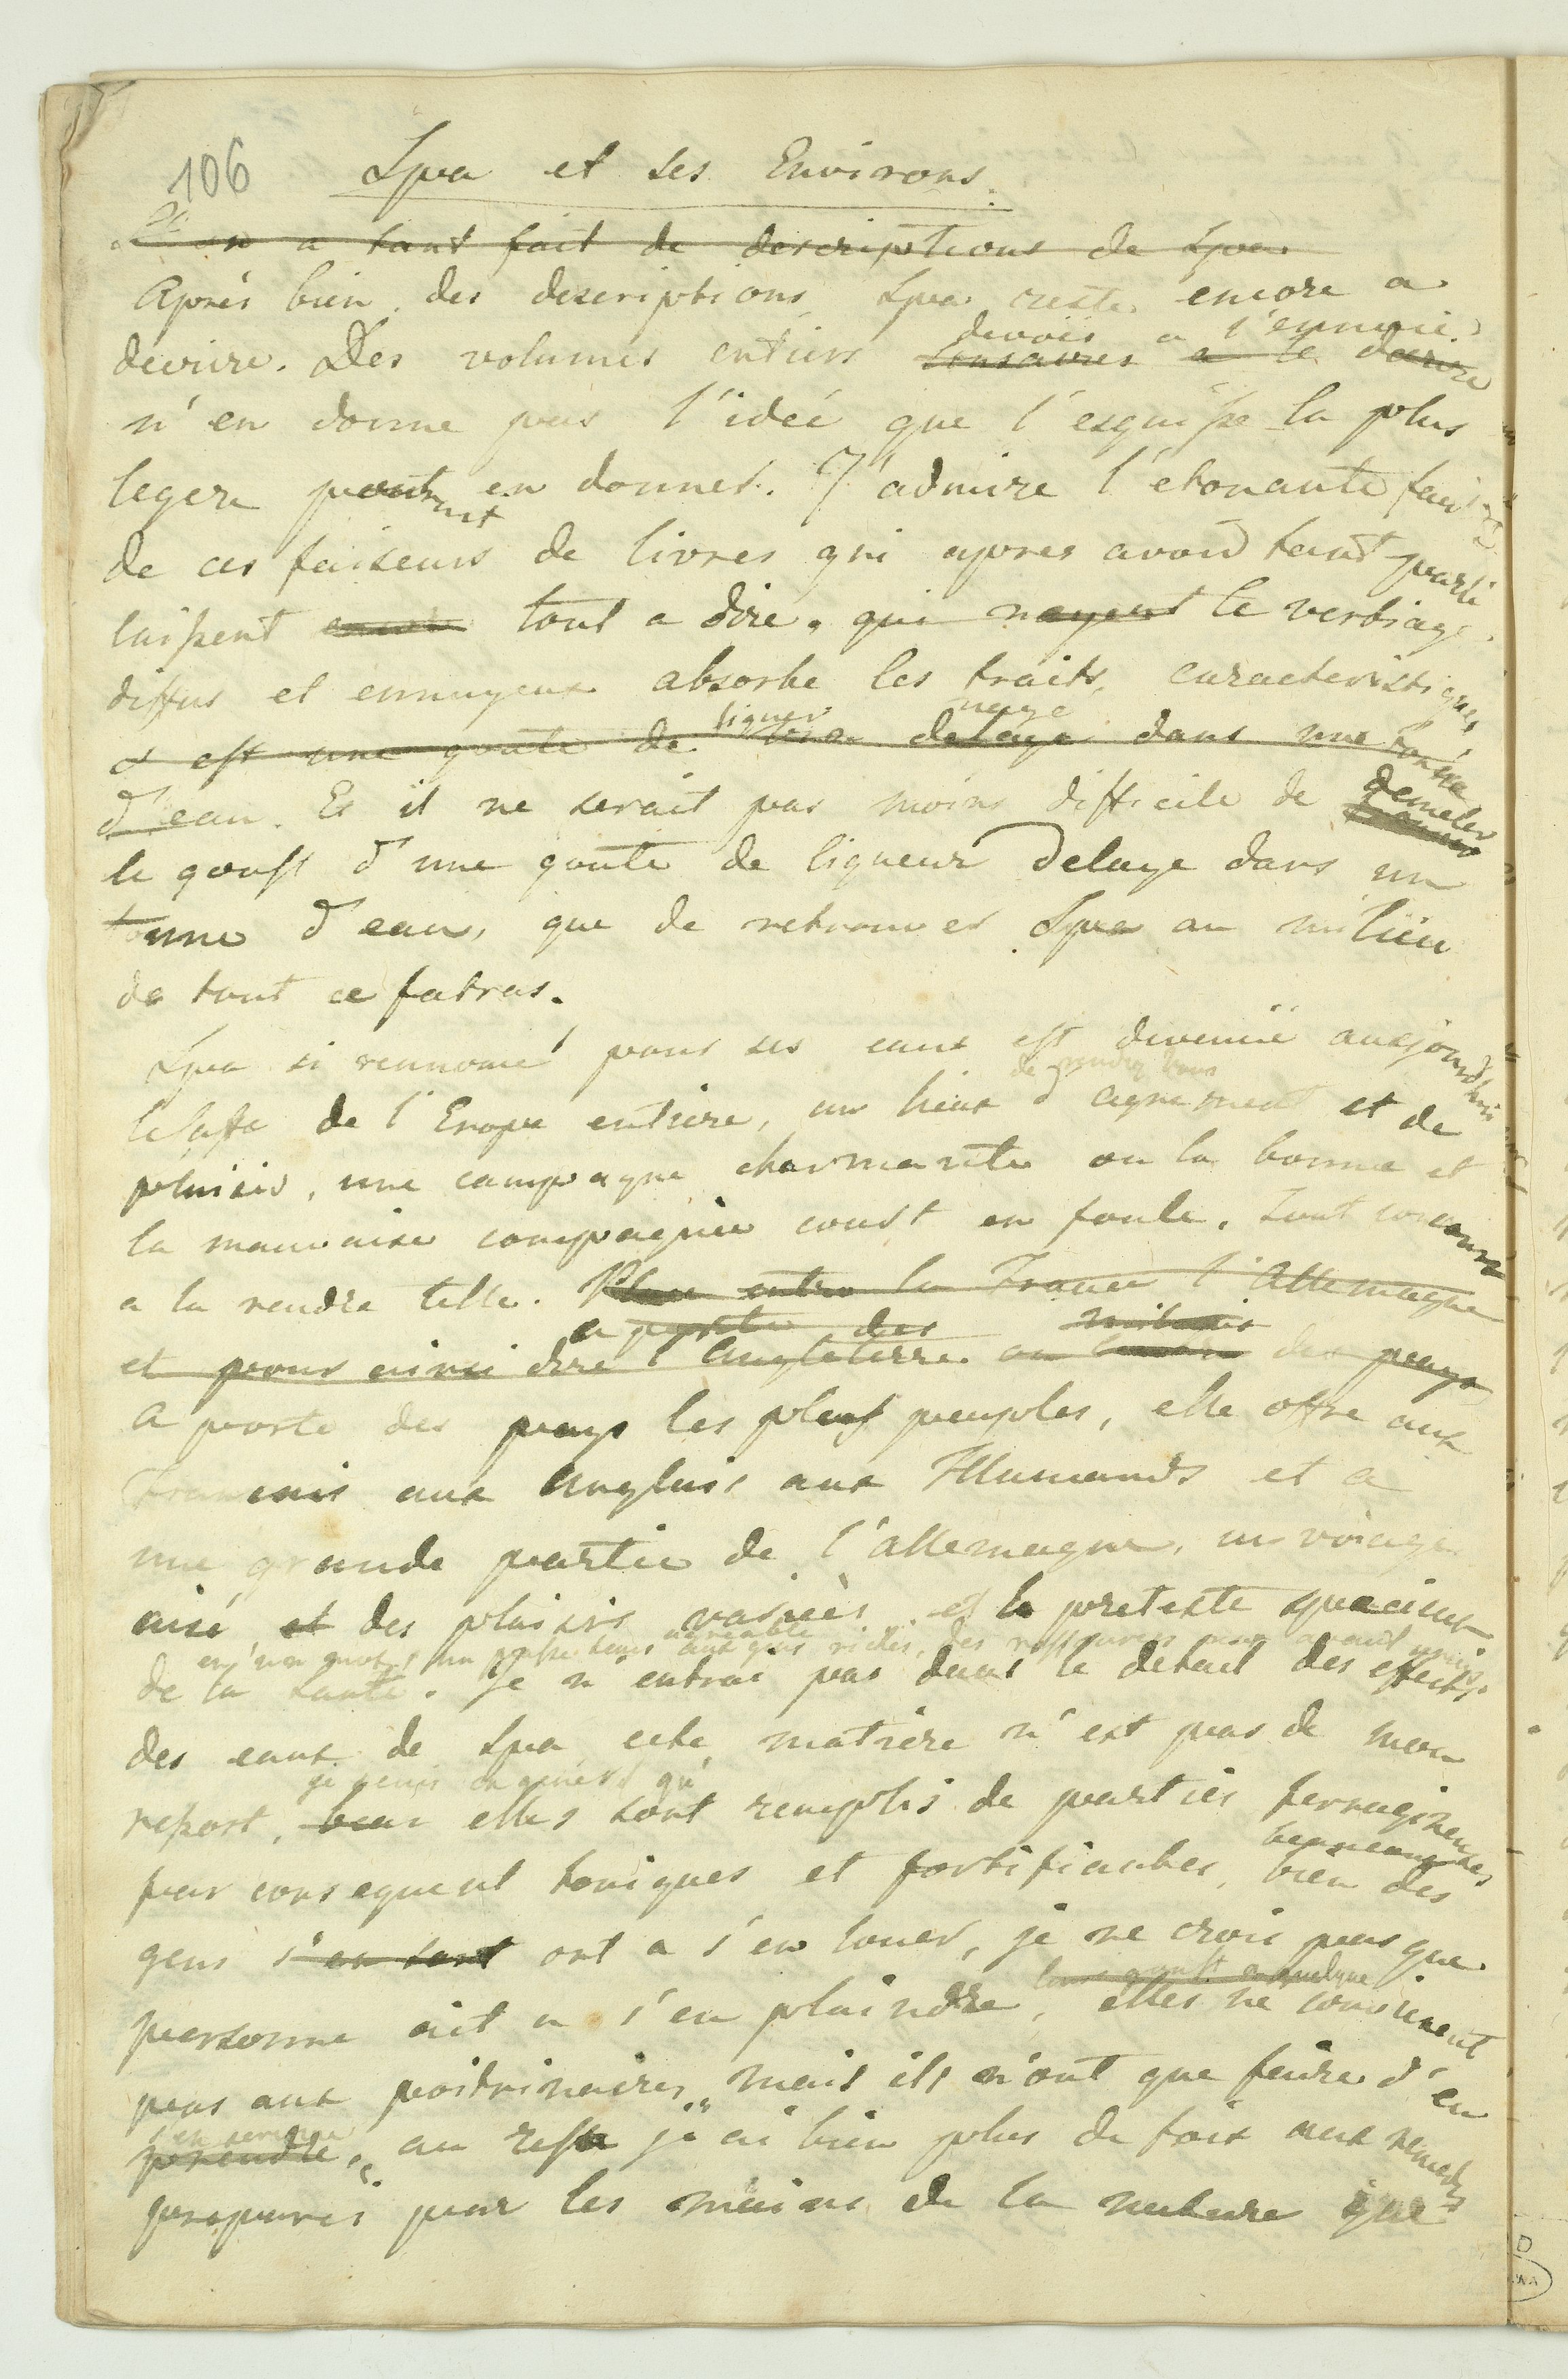 106 Spa et ses Environs.
on a tant fait de descriptions de Spa
Après bien des descriptions Spa reste encore a
devoüés a l'ennuie
decrire. Des volumes entiers consacrés a le decrire
n'en donne pas l'idée que l'esquisse la plus
legere peut en donner. J'admire l'etonante
de ces faiseurs de livres qui apres avoir tant parlé
laissent encore tout a dire, qui le verbiage
diffus et ennuyeux absorbe les traits caracteristiques
liqueur noyé
c'est une goute de delaye dans une tonne
d'eau. Et il ne serait pas moins difficile de demeler
le goust d'une goute de liqueur delaye dans un
tonne d'eau, que de retrouver Spa au milieu
de tout ce fatras.
Spa si rennomé pour ses eaux est devenüe aujourdhui
de rendez vous
le de l'Europe entiere, un lieux d'agrement et de
plaisir, une campagne charmante ou la bonne et
la mauvaise compagnie court en foule. tout concourt
a la rendre telle. Place entre la France l'Allemagne
a portée des
et pour ainsi dire l'Angleterre. au des pays
A porté des pays les plus peuples, elle offre aux
Francais aux Anglais aux Flamands et a
une grande partie de l'allemagne, un voiage
aisé et des plaisirs variées et le pretexte specieux
en un mot, un passe tems agreable aux gens riches, des ressources pour
de la santé. Je n'entrai pas dans le detail des effects
des eaux de Spa cete matiere n'est pas de mon
je scais en general qu'
resort, elles sont remplis de parties ferrugineuses
beaucoup
par consequent toniques et fortifiantes, bien des
gens s'en sont ont a s'en louer, je ne crois pas que
personne ait a s'en plaindre, elles ne convienent
pas aux poitrinaires, mais ils n'ont que faire d'en
prendre, au reste j'ai bien plus de foix aux remedes
preparés par les mains de la nature que